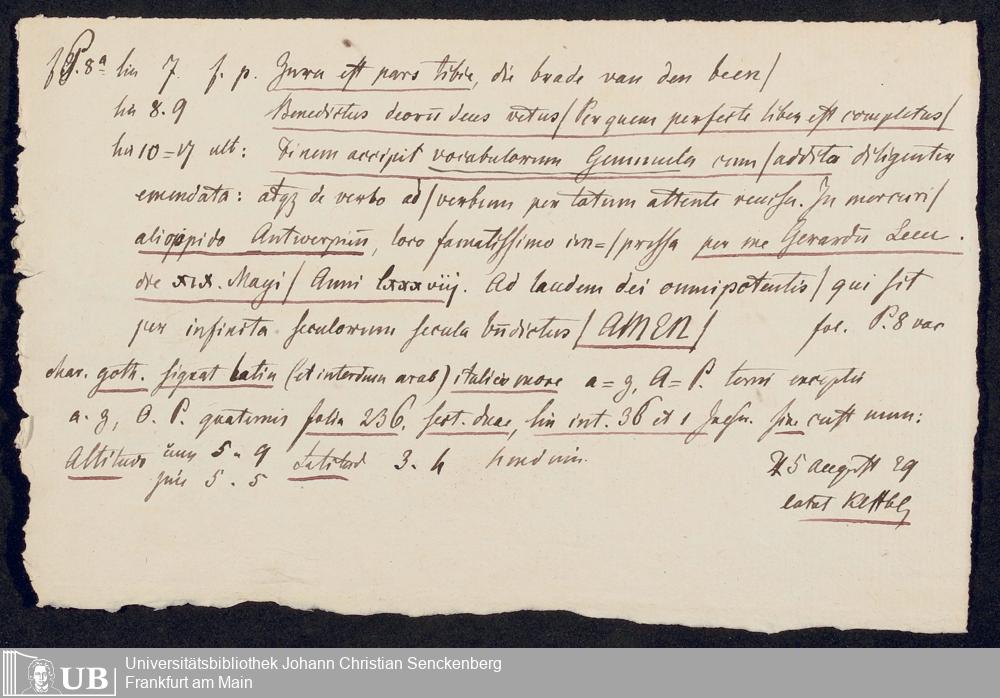 f P. 8a lin 7. f. p. Zura est pars tibie, die brade van den been/
lin 8. 9 Benedictus deorū deus vetus/ Per quem perfecte liber est completus/
lin 10=17 ult: Finem accipit vocabulorum Gemmula cum/ addita diligenter
emendata: atqz de verbo ad/ verbum per totum attente revisa. In mercuri/
ali oppido Antwerpiēn, loco famatissimo im=/ pressa per me Gerardū Leeu.
die xix. Maii/ Anni lxxxviij. Ad laudem dei omnipotentis/ qui sit
per infinita seculorum secula būdictus/ AMEN/ fol. P. 8 vac
char. goth. signat latin (et interdum arab) italico more a=z, A=P. terni exceptis
a. z, O. P. quaternis folia 236. sect. duae, lin int. 36 et sine cust num:
Altitudo 5 . 9 Latitud 3. 4
5 . 5 25 August 29